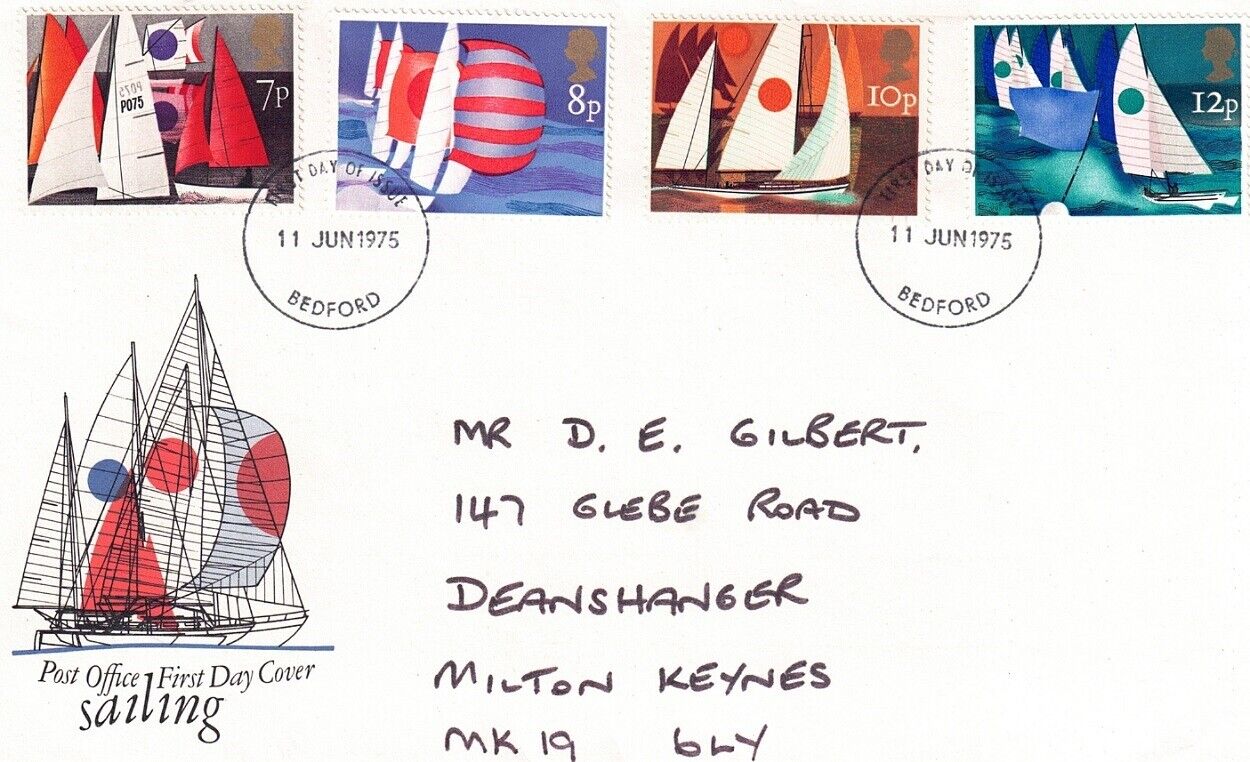 7p
8p
10p
12p
P075
P075
FIRST DAY OF ISSUE
11 JUN 1975
BEDFORD
FIRST DAY OF ISSUE
11 JUN 1975
BEDFORD
MR D. E. GILBERT,
147 GLEBE ROAD
DEANSHANGER
MILTON KEYNES
MK19 6LY
Post Office First Day Cover
sailing